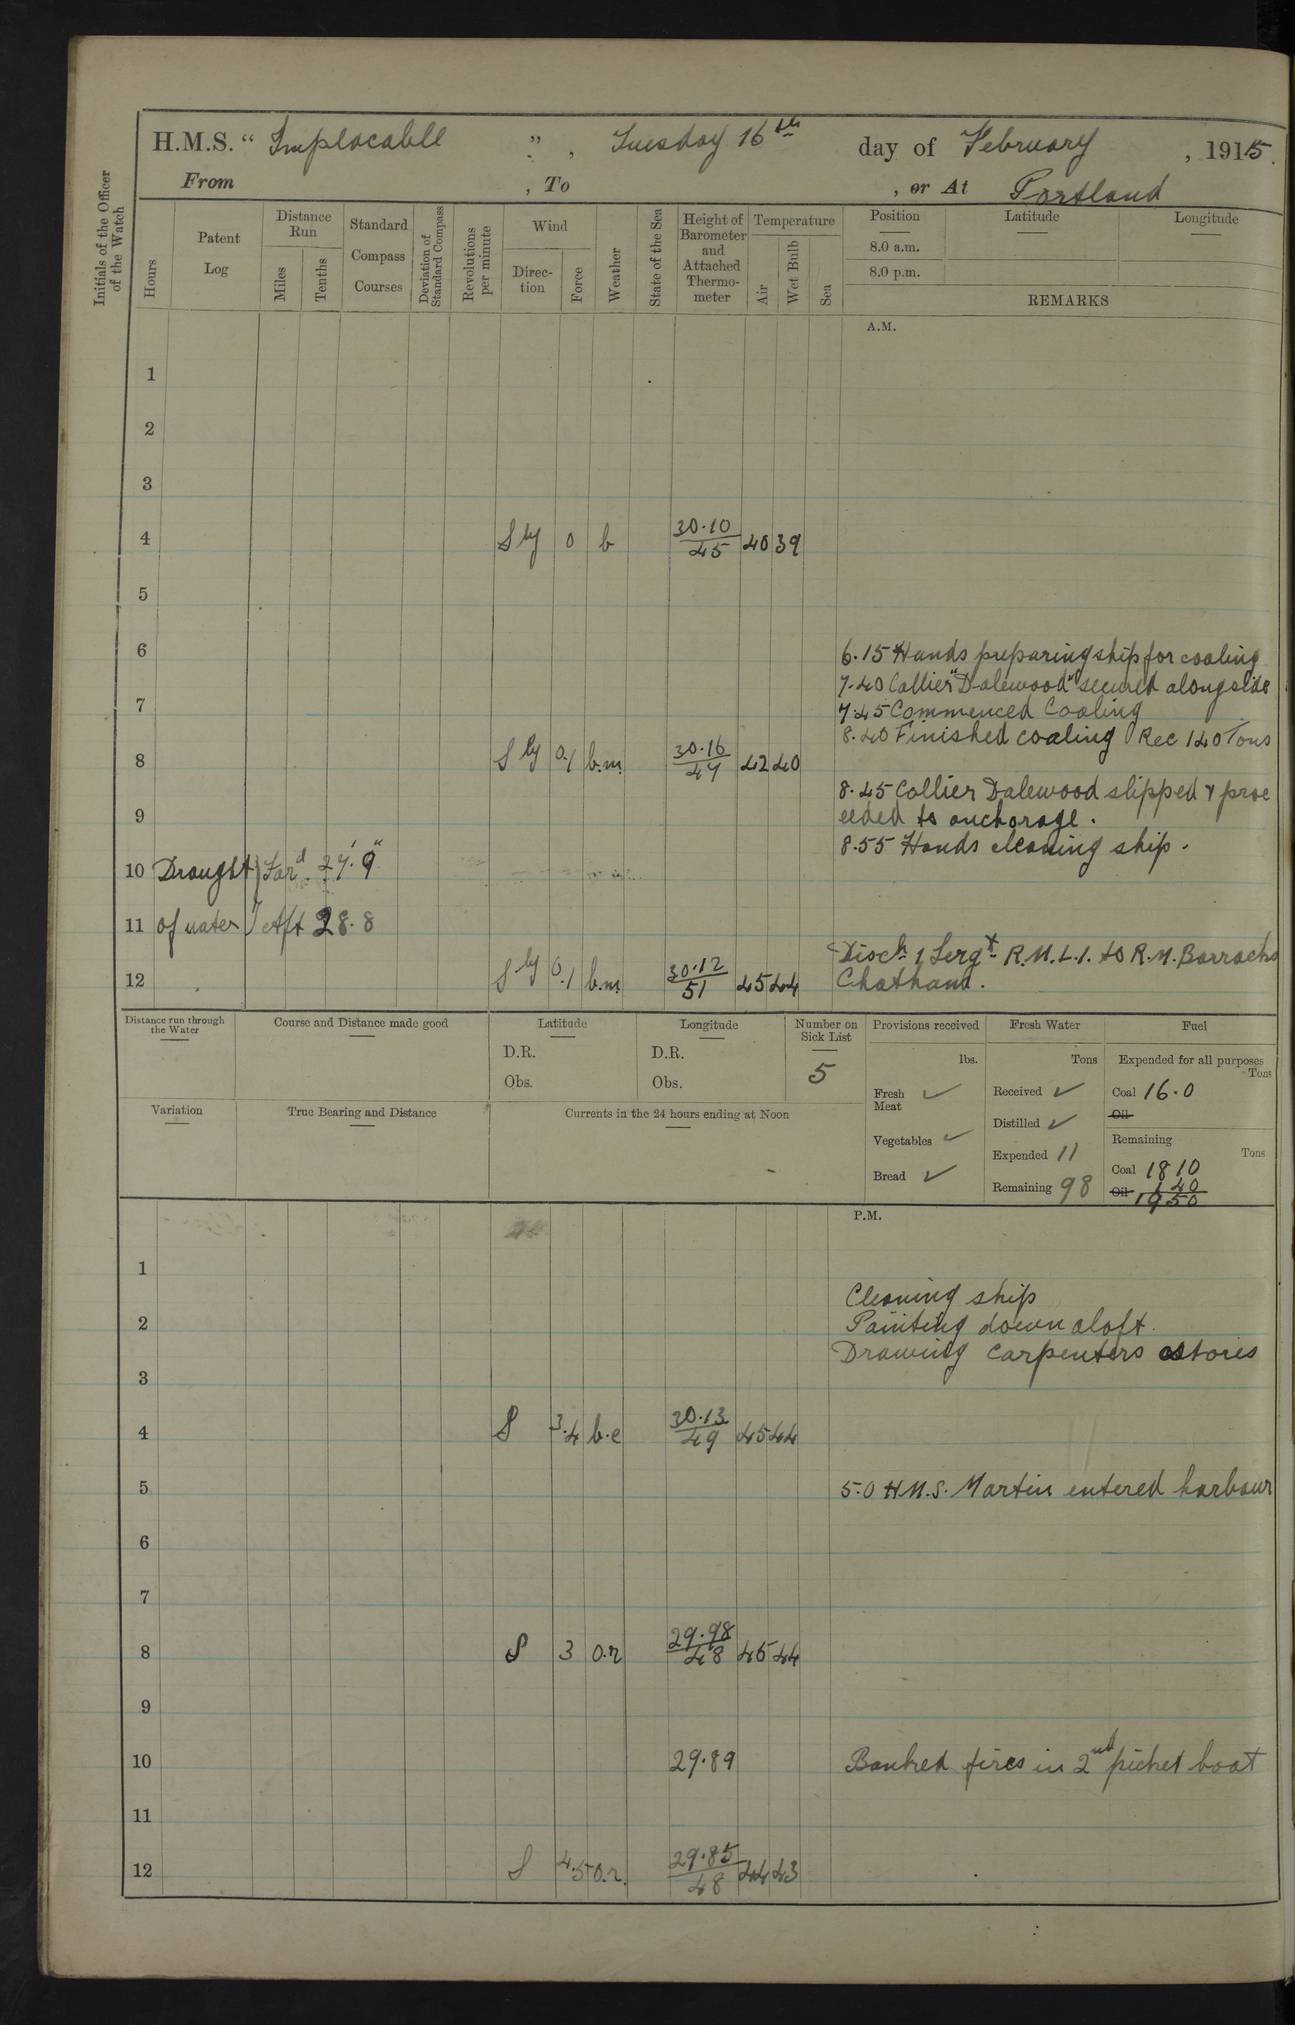 H.M.S. “ Implacable ” , Tuesday 16th day of February , 1915.
From , To , or At Portland
Initials of the Officer of the Watch
Hours
Patent Log
Distance Run
Miles
Tenths
Standard Compass Courses
Deviation of Standard Compass
Revolutions per minute
Wind
Direction
Force
Weather
State of the Sea
Height of Barometer and Attached Thermometer
Temperature
Air
Wet Bulb
Sea
Position
8.0 a.m.
8.0 p.m.
Latitude
Longitude
REMARKS
A.M.
1
2
3
4 Sly 0 b 30.10/45 40 39
5
6
6.15 Hands preparing ship for coaling
7.40 Collier "Dalewood" secured alongside
7
7.45 Commenced Coaling
8.40 Finished coaling Rec 140 Tons
8 Sly 0.1 b.m. 30.16/47 42 40
8.45 Collier Dalewood slipped & proc
9
eeded to anchorage.
8.55 Hands cleaning ship.
10 Draught } For'd. 27' 9"
11 of water } Aft 28. 8
Disch. 1 Sergt. R.M.L.I. to R.M. Barracks
12 Sly 0.1 b.m. 30.12/51 45 44 Chatham.
Distance run through the Water
Course and Distance made good
Latitude
D.R.
Obs.
Longitude
D.R.
Obs.
Number on Sick List
5
Provisions received
lbs.
Fresh Meat ✓
Vegetables ✓
Bread ✓
Fresh Water
Tons
Received ✓
Distilled ✓
Expended 11
Remaining 98
Fuel
Expended for all purposes
Tons
Coal 16.0
Oil
Remaining
Tons
Coal 1810
Oil 140
1950
Variation
True Bearing and Distance
Currents in the 24 hours ending at Noon
P.M.
1
Cleaning ship
2 Painting down aloft.
Drawing Carpenters stores
3
4 S 3.4 b.c 30.13/49 45 44
5 5.0 H.M.S. Martin entered harbour
6
7
8 S 3 o.r 29.98/48 45 44
9
10 29.89 Banked fires in 2nd picket boat
11
12 S 4.5 o.r. 29.85/48 44 43